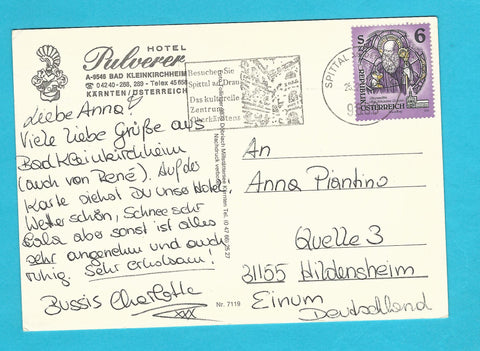 HOTEL
Pulverer
A-9546 BAD KLEINKIRCHHEIM
☎ 04240-288, 289 - Telex 45 658
KÄRNTEN/ÖSTERREICH
Liebe Anna!
Viele liebe Grüße aus
Bad Kleinkirchheim
(auch von René). Auf der
Karte siehst Du unser Hotel.
Wetter schön, Schnee sehr
aber sonst ist alles
sehr angenehm und auch
ruhig. Sehr erholsam!
Bussis Charlotte
xxx
Besuchen Sie
Spittal a.d. Drau
Das kulturelle
Zentrum
Oberkärntens
SPITTAL
6
REPUBLIK
ÖSTERREICH
Nachdruck verboten
Nr. 7119
An
Anna Piantino
Quelle 3
31155 Hildensheim
Einum
Deutschland